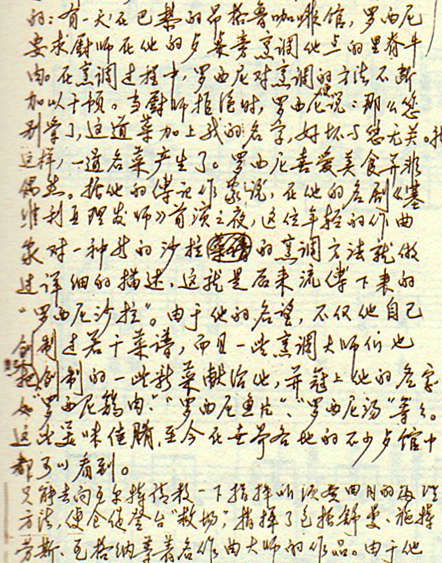 的：有一天在巴黎的昂格鲁咖啡馆，罗西尼
要求厨师在他的点菜旁烹调他点的里脊牛
肉。在烹调过程中，罗西尼对烹调的方法不断
加以干预。当厨师拒绝时，罗西尼说：那么您
别管了，这道菜加上我的名字，好坏与您无关。
这样，一道名菜产生了。罗西尼喜爱美食并非
偶然。据他的传记作家说，在他的名剧《塞
维利亚理发师》首演之夜，这位年轻的作曲
家对一种新的沙拉的烹调方法就做
过详细的描述，这就是后来流传下来的
“罗西尼沙拉”。由于他的名望，不仅他自己
创制过若干菜谱，而且一些烹调大师们也
把创制的一些新菜献给他，并冠上他的名字
如“罗西尼鹅肉”、“罗西尼鱼片”、“罗西尼汤”等等。
这些美味佳肴，至今在世界各地的不少饭馆中
都可以看到。
只能去向瓦尔特请教一下指挥所须要曲目的处理
方法，便仓促登台“救场”，指挥了包括舒曼、施特
劳斯、瓦格纳等著名作曲大师的作品。由于他